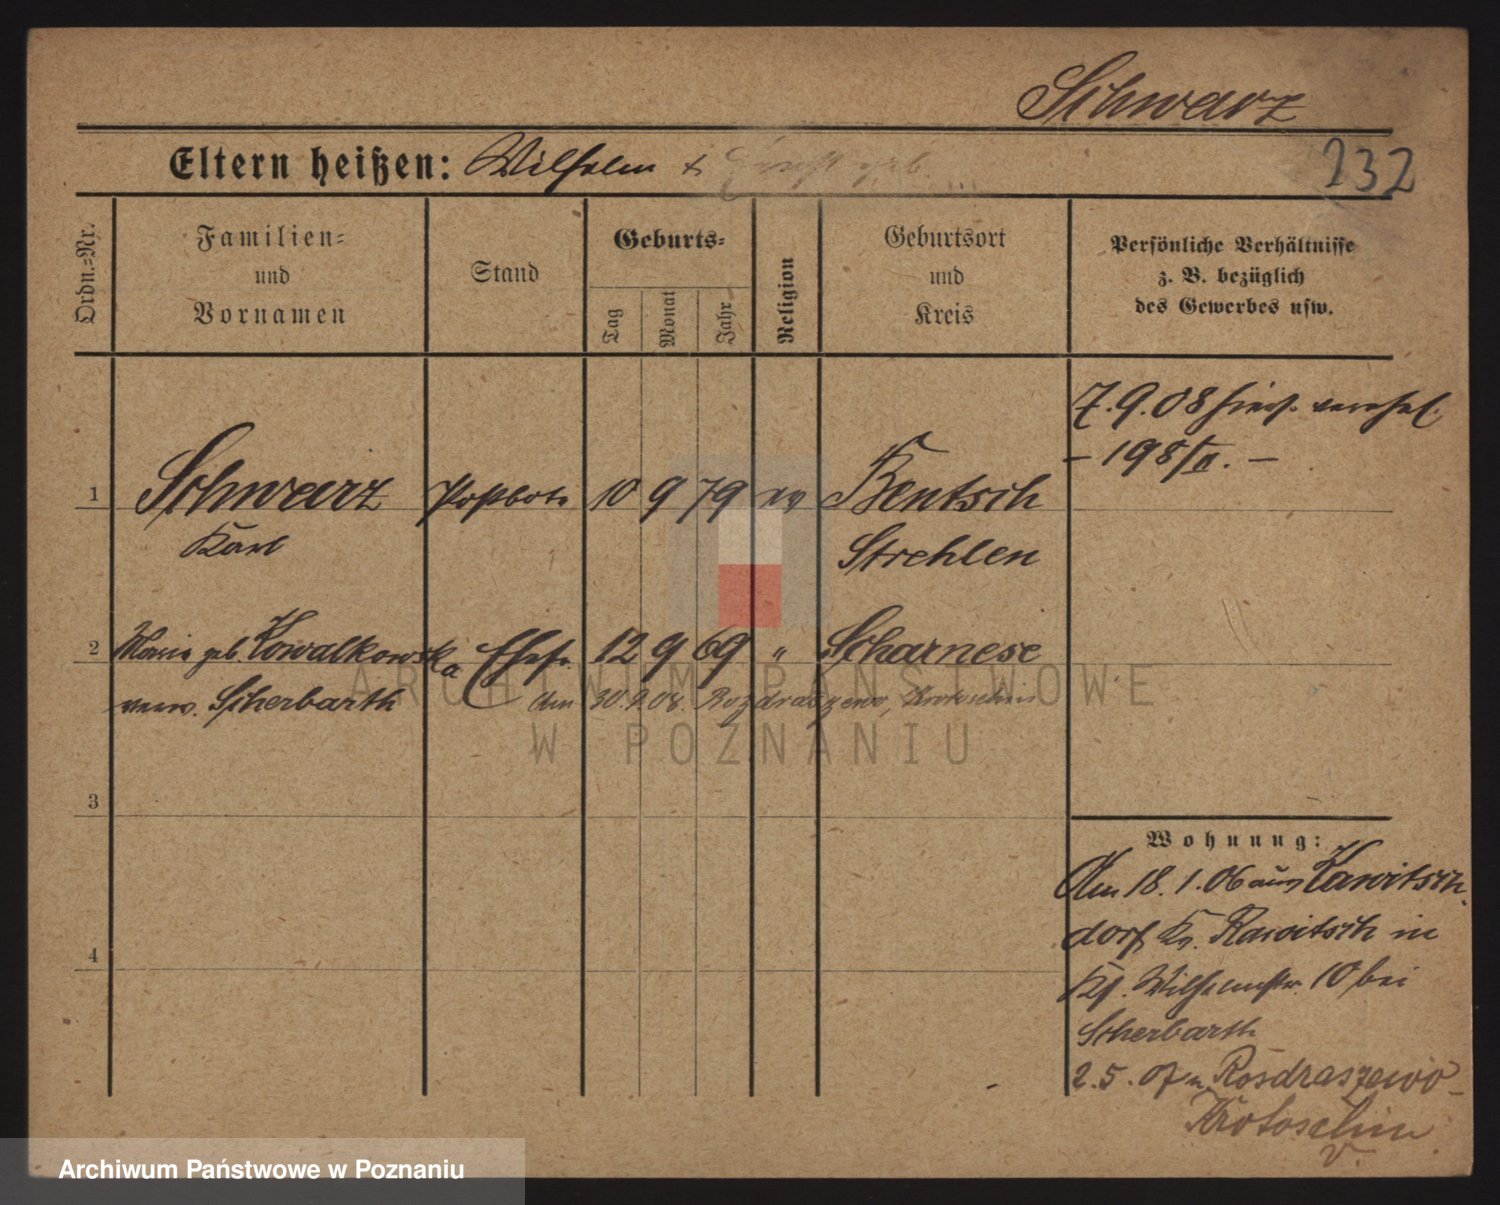 Schwarz
Eltern heißen: Wilhelm & geb.
232
Ordn.-Nr.
Familien-
und
Vornamen
Stand
Geburts-
Tag
Monat
Jahr
Religion
Geburtsort
und
Kreis
Persönliche Verhältnisse
z. B. bezüglich
des Gewerbes usw.
7.9.08 hier. verehel.
- 198/II. -
1 Schwarz Postbote 10 9 79 ev Bentsch
Karl Strehlen
2 Maria geb. Kowalkowska Ehefr. 12 9 69 " Scharnese
verw. Scherbarth Am 30.9.08. Rozdraszewo, Krotoschin
3
4
Wohnung:
Am 18.1.06 aus Rawitsch-
dorf, Kr. Rawitsch in
Kj. Wilhelmstr. 10 bei
Scherbarth
2.5.07 n. Rosdraszewo-
Krotoschin
v.
ARCHIWUM PAŃSTWOWE
W POZNANIU
Archiwum Państwowe w Poznaniu